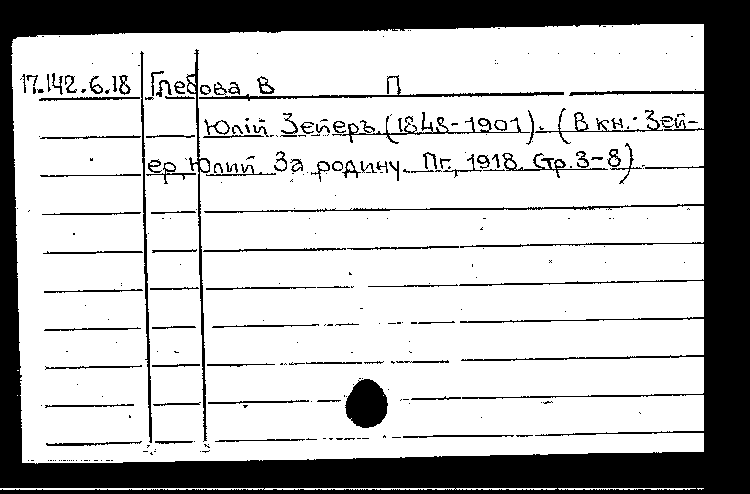 17.142.6.18 Глебова, В П
Юлій Зейеръ. (1848-1901). (В кн.: Зей-
ер, Юлий. За родину. Пг., 1918. Стр. 3-8)